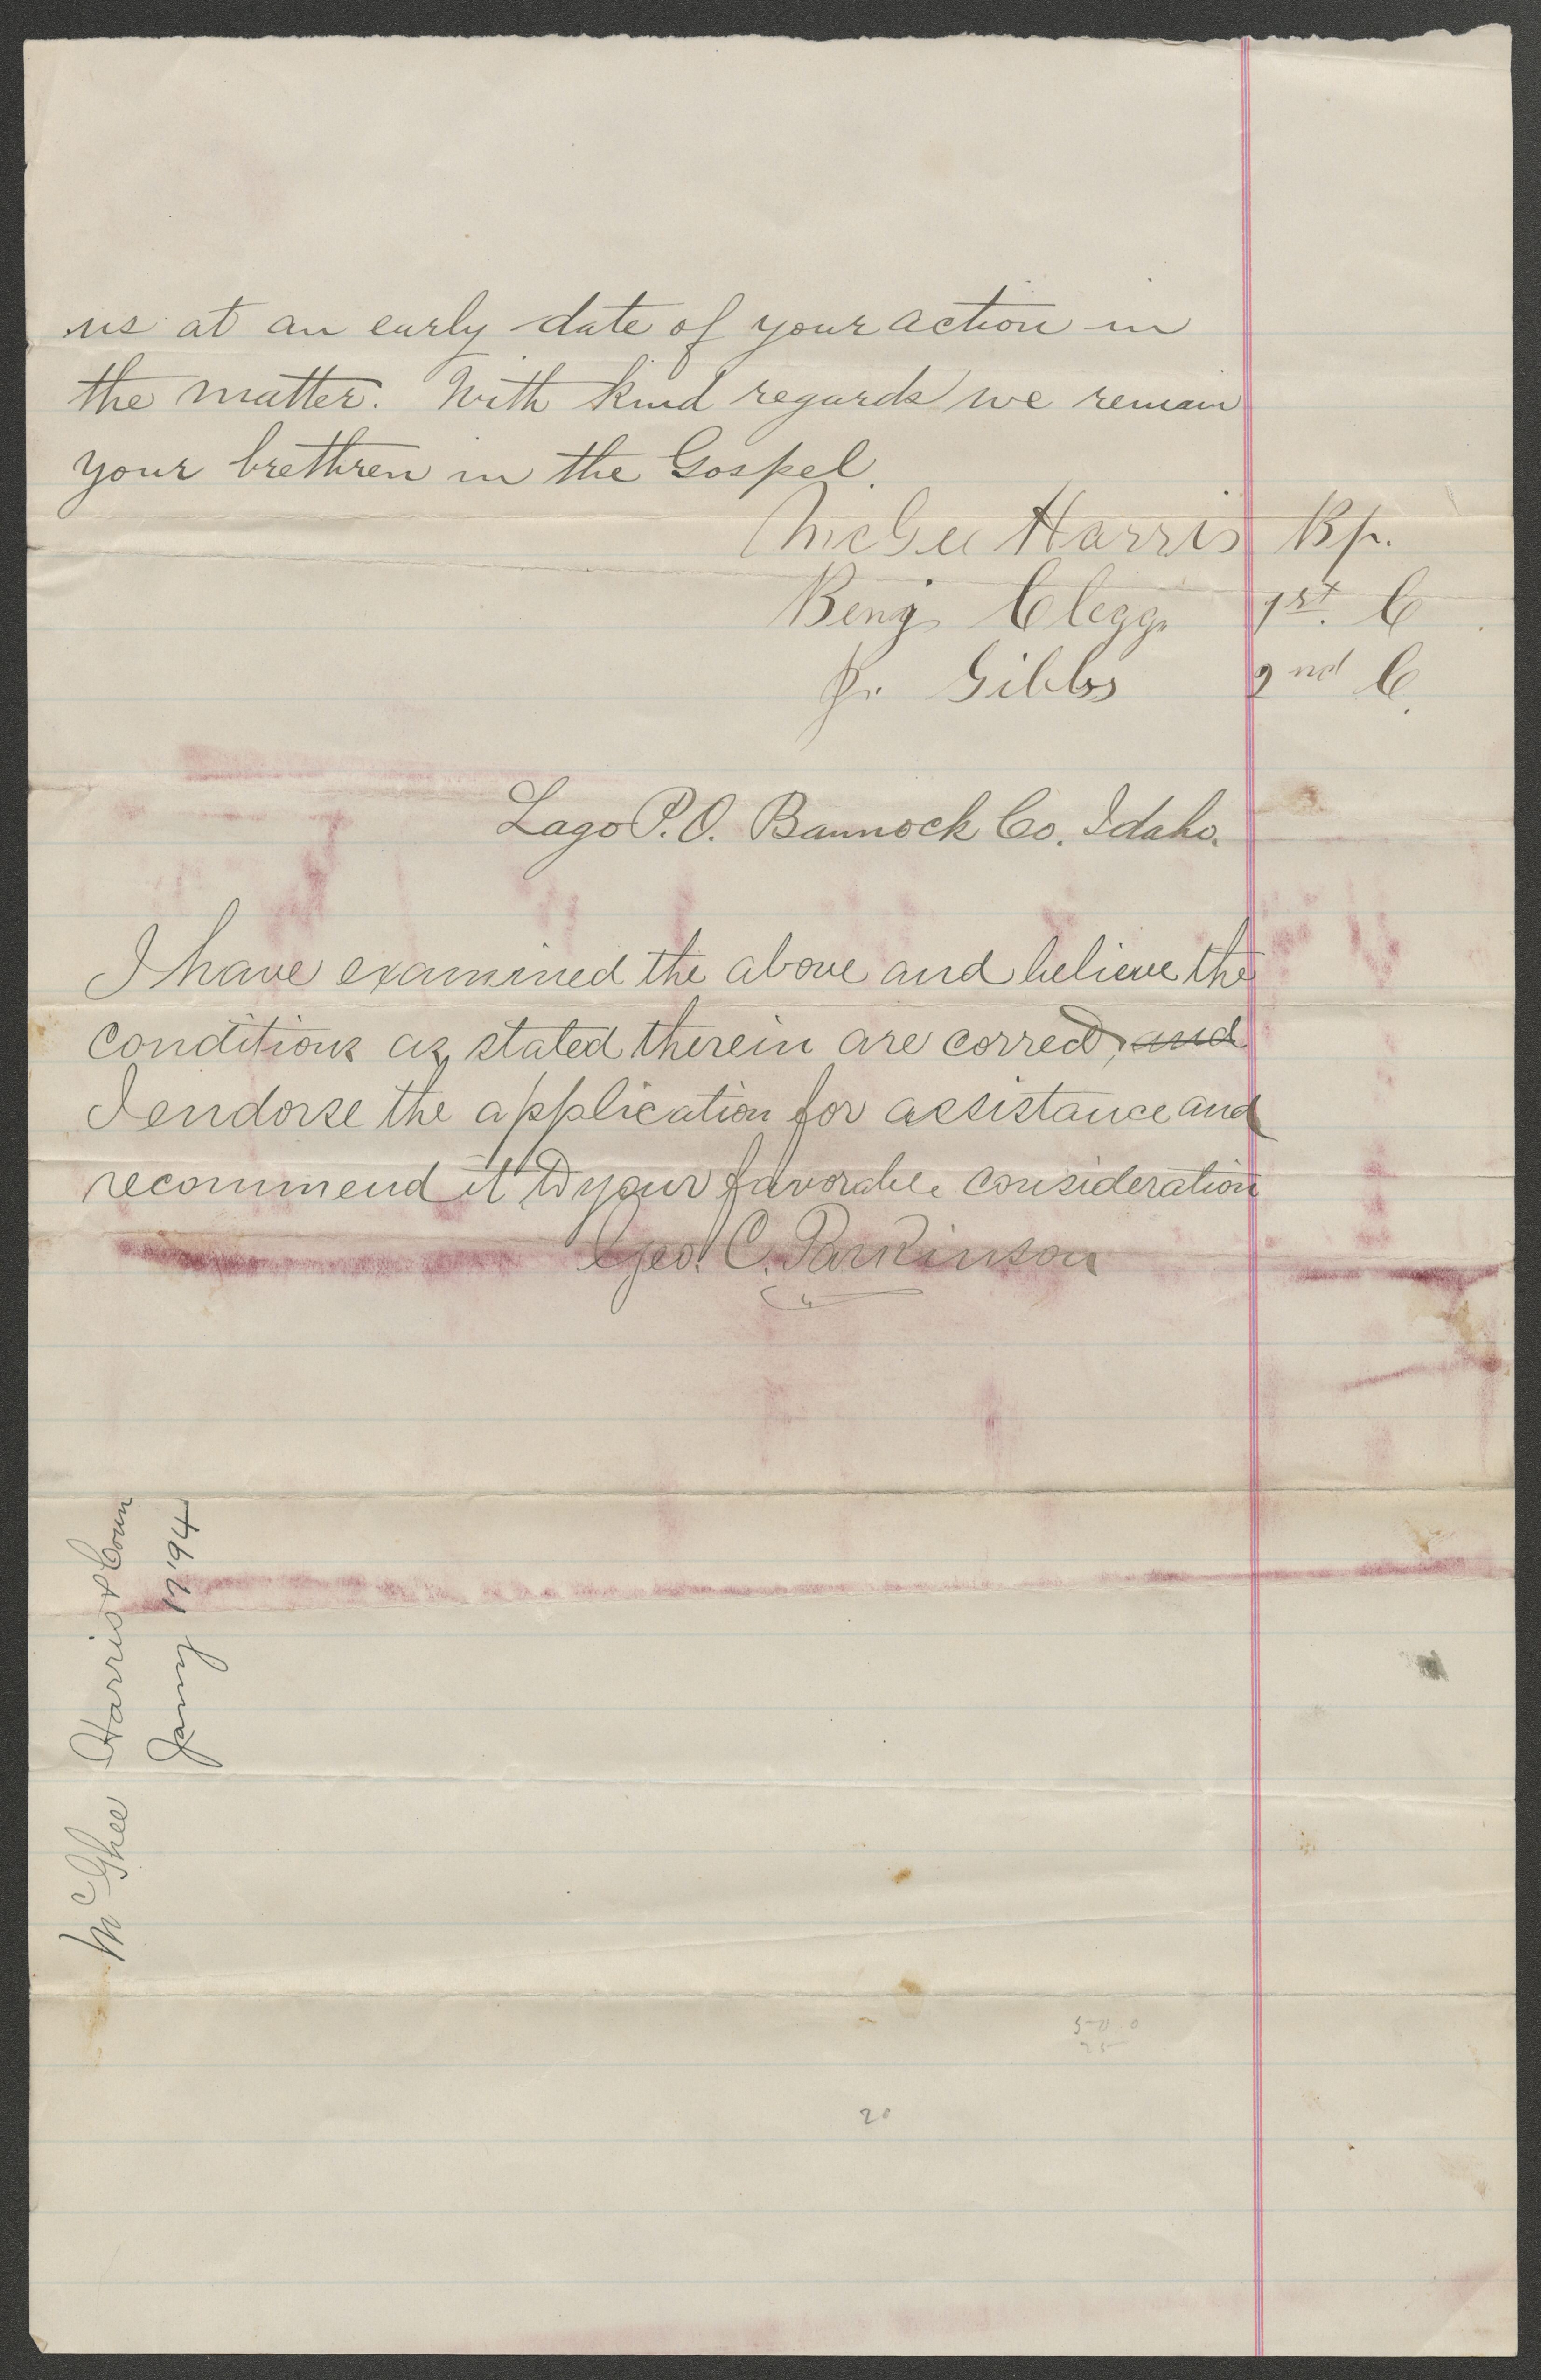 us at an early date of your action in
the matter. With kind regards we remain
your brethren in the Gospel.
McGee Harris Bp.
Benj. Clegg 1st. C
Jr. Gibbs 2nd C.
Lago P.O. Bannock Co. Idaho.
I have examined the above and believe the
conditions as stated therein are correct, and
I endorse the application for assistance and
recommend it to your favorable consideration
Geo. C. Parkinson
McGhee Harris & Coun
Jany 17, '94
500
25
20